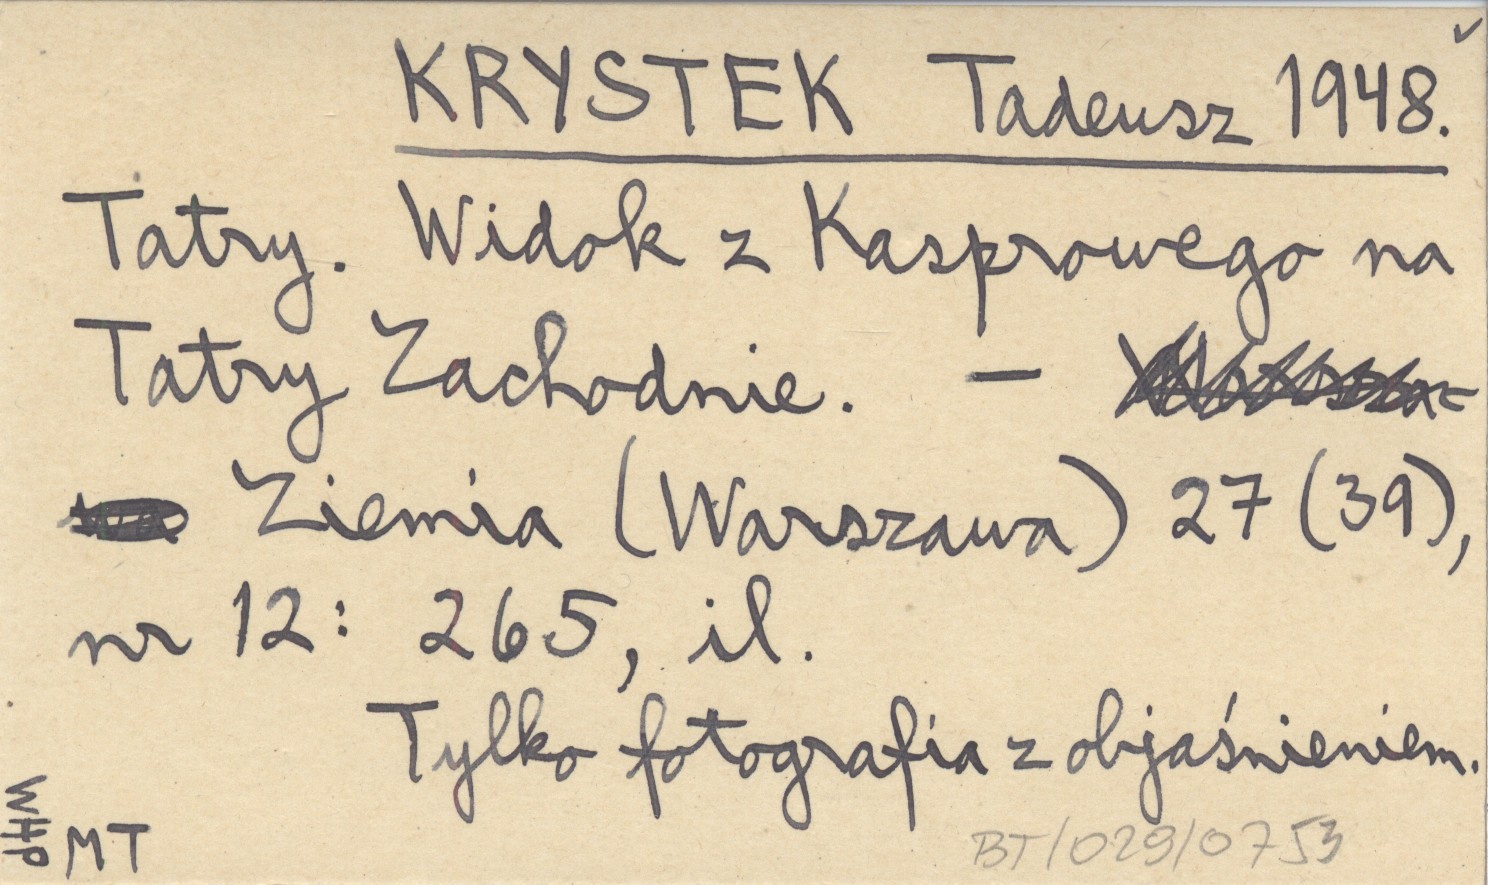 KRYSTEK Tadeusz 1948.
Tatry. Widok z Kasprowego na
Tatry Zachodnie. –
Ziemia (Warszawa) 27 (39),
nr 12: 265, il.
Tylko fotografia z objaśnieniem.
WHP
MT
BT/029/0753